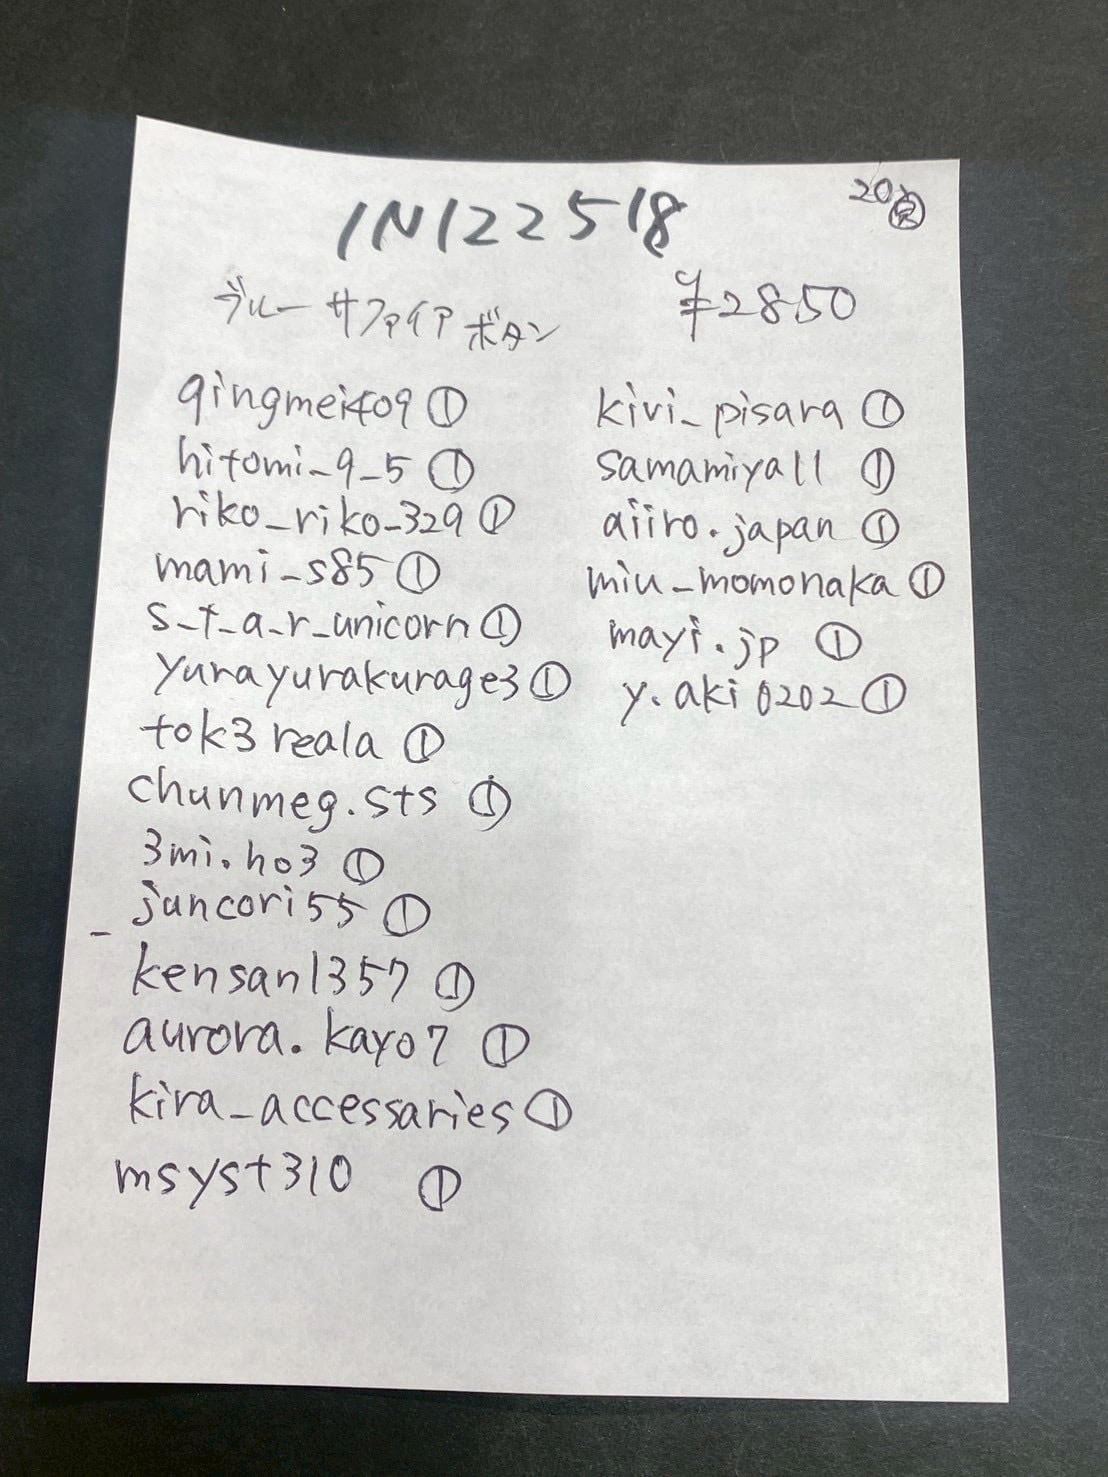 1N122518
20点
ブルーサファイアボタン
¥2850
qingmei409 ①
hitomi_9_5 ①
riko_riko_329 ①
mami_s85 ①
s_t_a_r_unicorn ①
yurayurakurage3 ①
tok3reala ①
chunmeg.sts ①
3mi.ho3 ①
_juncori55 ①
kensan1357 ①
aurora.kayo7 ①
kira_accessaries ①
msyst310 ①
kivi_pisara ①
samamiya11 ①
aiiro.japan ①
miu_momonaka ①
mayi.jp ①
y.aki0202 ①